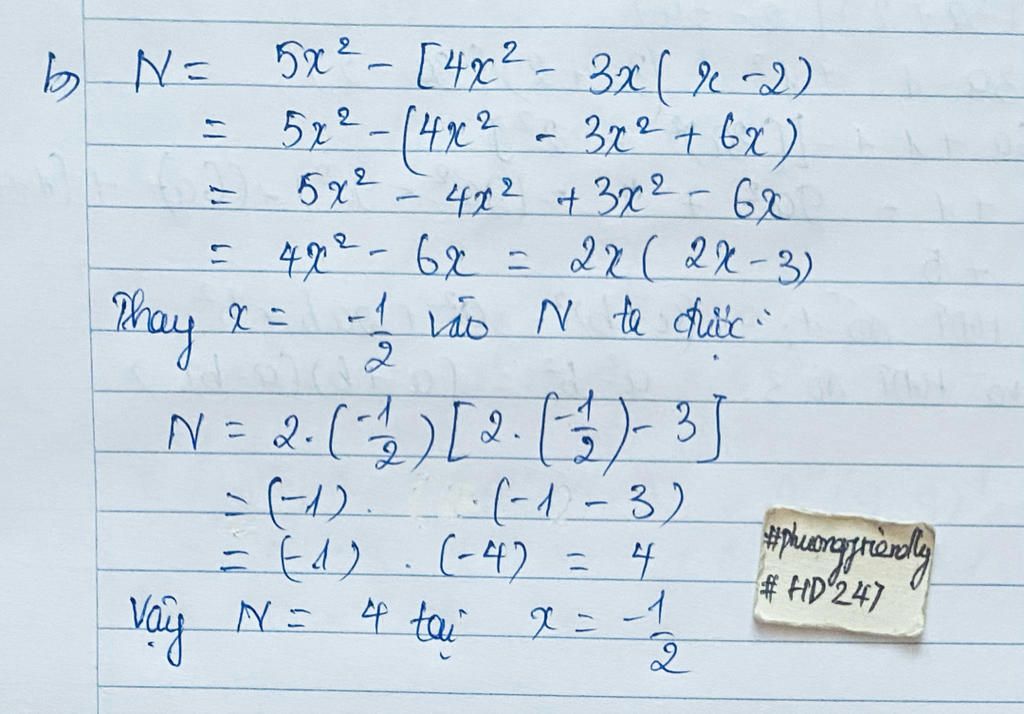 b) N = 5x² - [4x² - 3x( x - 2)
= 5x² - (4x² - 3x² + 6x)
= 5x² - 4x² + 3x² - 6x
= 4x² - 6x = 2x( 2x - 3)
Thay x = -1/2 vào N ta được:
N = 2.(-1/2)[2.(-1/2) - 3]
= (-1). .(-1 - 3)
= (-1) . (-4) = 4
Vậy N = 4 tại x = -1/2
#phuongfriendly
# HD247